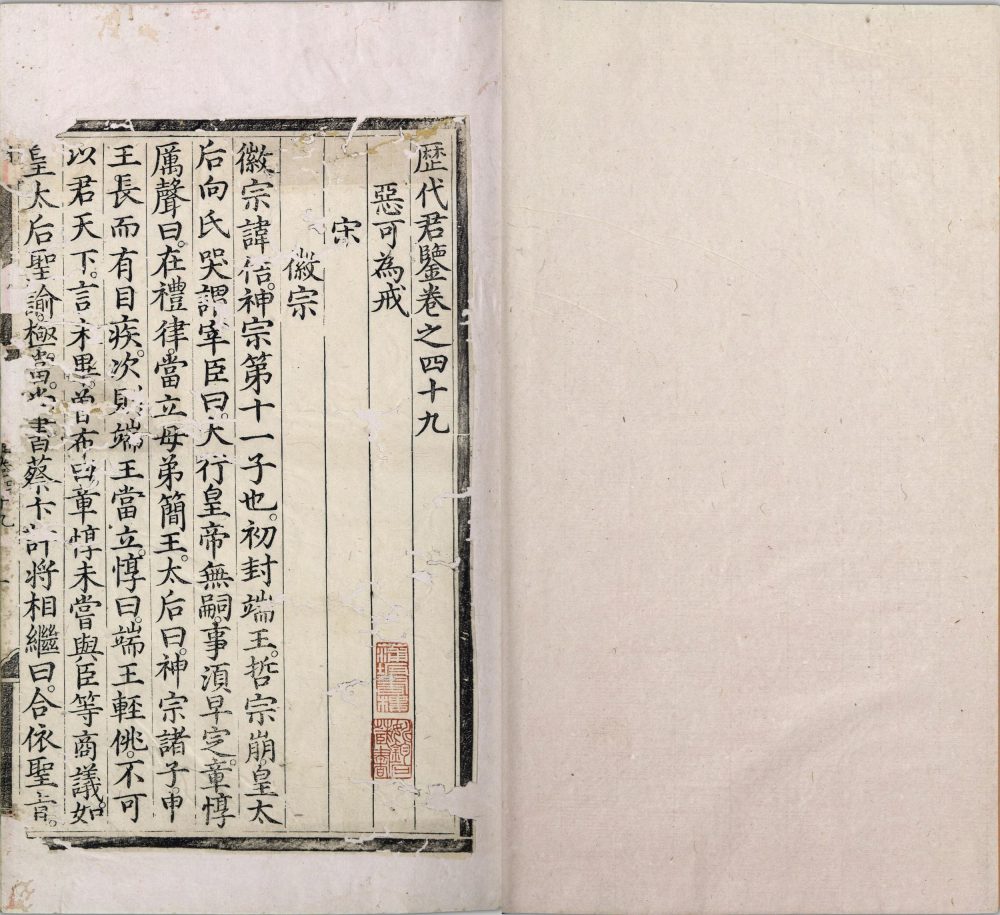 歷代君鑒卷之四十九
惡可為戒
宋
徽宗
徽宗諱佶。神宗第十一子也。初封端王。哲宗崩。皇太
后向氏哭謂宰臣曰。大行皇帝無嗣。事須早定。章惇
厲聲曰。在禮律。當立母弟簡王。太后曰。神宗諸子。申
王長而有目疾。次則端王當立。惇曰。端王輕佻。不可
以君天下。言未畢。曾布曰。章惇未嘗與臣等商議。如
皇太后聖諭。極當。尚書蔡卞許將相繼曰。合依聖旨。